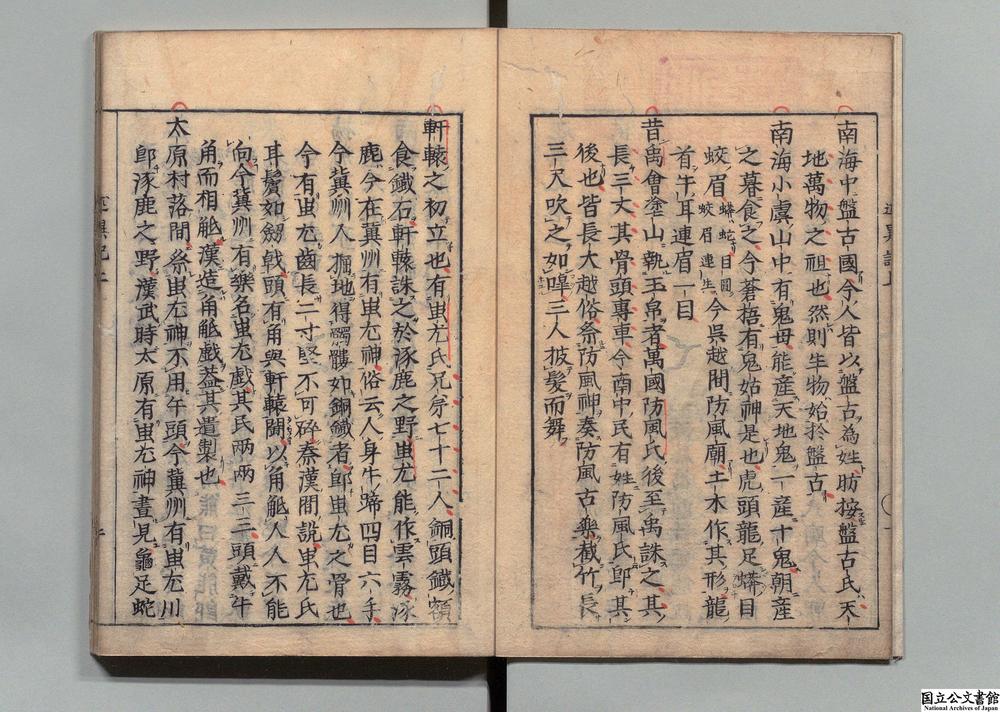 南海中盤古國今人皆以盤古為姓昉按盤古氏天
地萬物之祖也然則生物始於盤古
南海小虞山中有鬼母能產天地鬼一產十鬼朝產
之暮食之今蒼梧有鬼姑神是也虎頭龍足蟒目
蛟眉蟒蛇目圓蛟眉連生今吳越間防風廟土木作其形龍
首牛耳連眉一目
昔禹會塗山執玉帛者萬國防風氏後至禹誅之其
長三丈其骨頭專車今南中民有姓防風氏即其
後也皆長大越俗祭防風神奏防風古樂截竹長
三尺吹之如嘷三人披髮而舞
軒轅之初立也有蚩尤氏兄弟七十二人銅頭鐵額
食鐵石軒轅誅之於涿鹿之野蚩尤能作雲霧涿
鹿今在冀州有蚩尤神俗云人身牛蹄四目六手
今冀州人掘地得髑髏如銅鐵者即蚩尤之骨也
今有蚩尤齒長二寸堅不可碎秦漢間說蚩尤氏
耳鬢如劒戟頭有角與軒轅鬪以角觝人人不能
向今冀州有樂名蚩尤戲其民兩兩三三頭戴牛
角而相觝漢造角觝戲葢其遺製也
太原村落間祭蚩尤神不用牛頭今冀州有蚩尤川
即涿鹿之野漢武時太原有蚩尤神晝見龜足蛇
述異記上
国立公文書館
National Archives of Japan